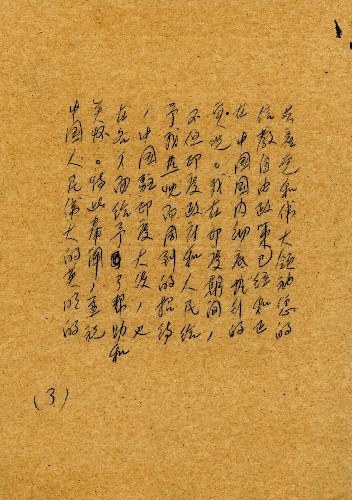 共產党和偉大領袖您的
信教自由政策已經和正
在中国国内彻底推行的
實况。我在印度期间，
不但印度政府和人民给
予我热忱而周到的招待
，中国駐印度大使，也
在各方面给予了帮助和
关怀。特此奉闻，並祝
中国人民偉大的英明的
(3)